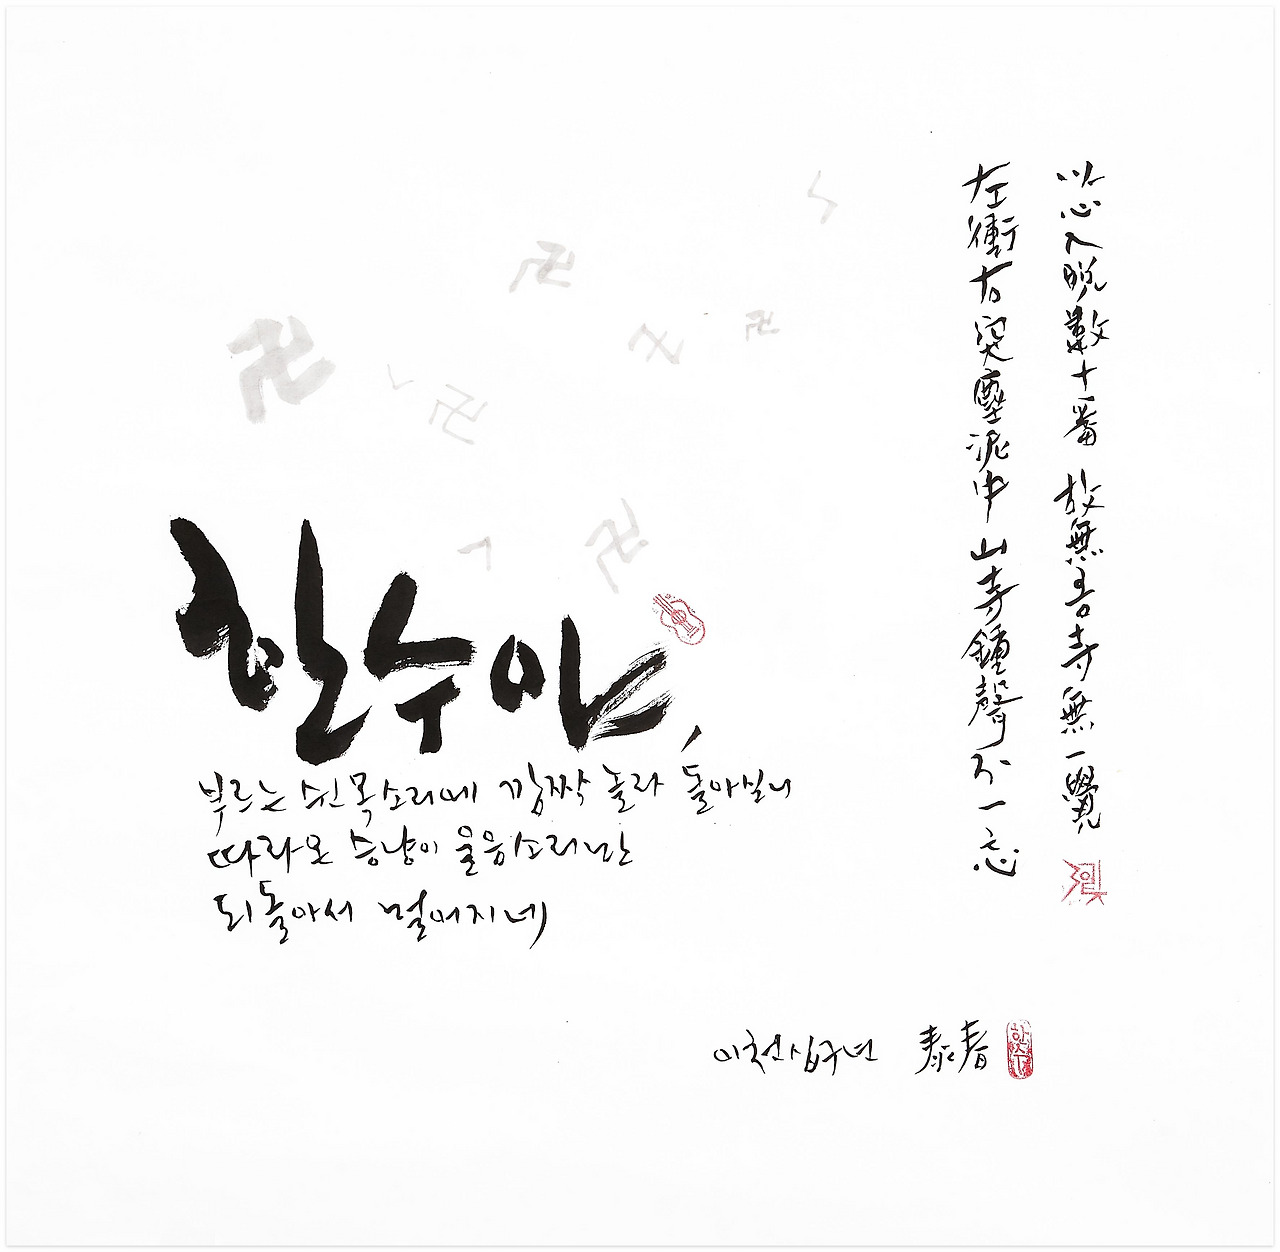 한수야,
부르는 쉰 목소리에 깜짝 놀라 돌아보니
따라온 승냥이 울음소리만
되돌아서 멀어지네
以心入脫數十番 放無吾寺無一覺
左衝右突塵泥中 山寺鍾聲不一忘
이천십구년 泰春
한수